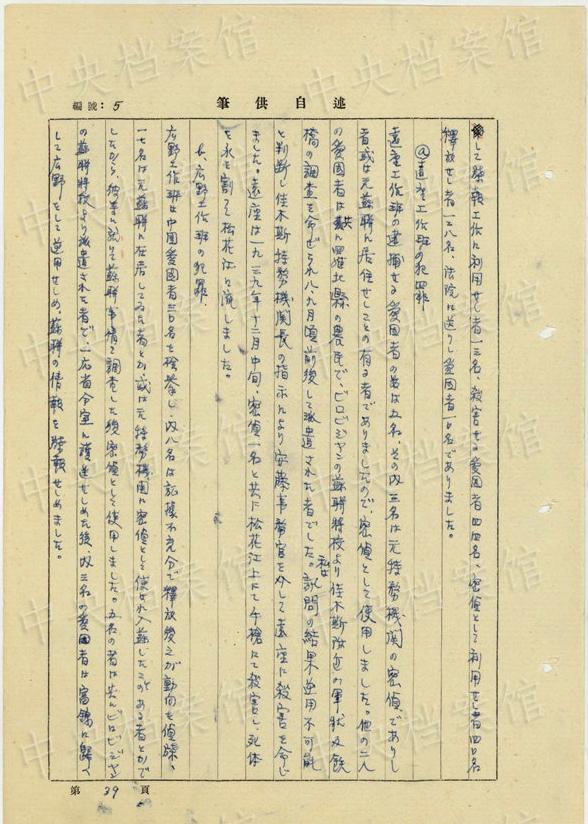 述自供筆
編號：5
して諜報工作に利用せし者一三名、殺害せる愛国者四四名、密偵として利用せし者四〇名
釈放せし者一二八名、法院に送りし愛国者一〇名でありました。
ⓐ遠重工作班の犯罪
遠重工作班の逮捕せる愛国者の数は五名、その内三名は元特務機関の密偵でありし
者或は元蘇聯に居住せしことの有る者でありましたので、密偵として使用しました。他の二人
の愛国者は共に県の農民で、ビロビジャンの蘇聯将校より佳木斯附近の軍状及鉄
橋の調査を命ぜられ八、九月頃前後して派遣された者でした。訊問の結果逆用不可能
と判断し佳木斯特務機関長の指示により安藤事務官を介して遠重に殺害を命じ
ました。遠重は一九三九年十二月中旬、密偵一名と共に松花江上にて拳槍にて殺害し、死体
を氷を割って松花江に流しました。
b、広野工作班の犯罪
広野工作班は中国愛国者三〇名を検挙し、内八名は証拠不充分で釈放後之が動向を偵諜、
一七名は元蘇聯に在居してゐた者とか、或は元特務機関に密偵として使はれ入蘇したことのある者とかで
したから、彼等に就て蘇聯事情を調査した後密偵として使用しました。五名の者は共にビロビジャン
の蘇聯将校より派遣された者で、一応省公署に護送せしめた後、内三名の愛国者は富錦に帰へ
して広野をして逆用せしめ、蘇聯の情報を諜報せしめました。
第 39 頁
中央档案馆